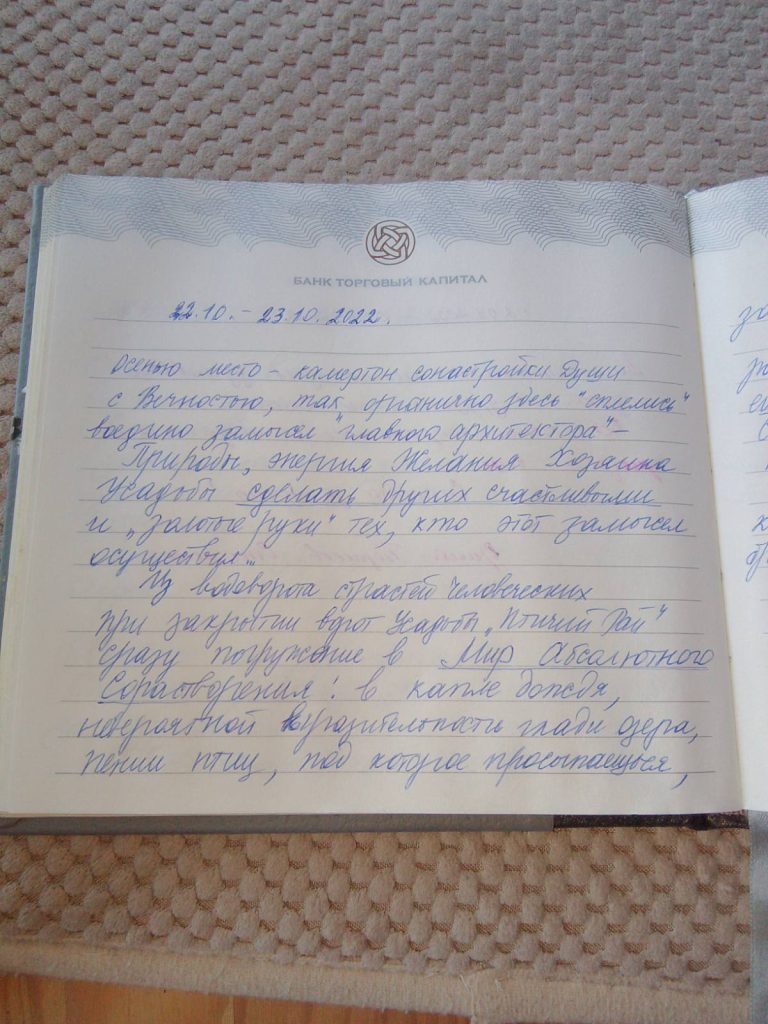 БАНК ТОРГОВЫЙ КАПИТАЛ
22.10. – 23.10. 2022.
Осенью место – камертон сонастройки Души
с Вечностью, так органично здесь "сплелись"
воедино замысел "главного архитектора" –
Природы, энергия Желания Хозяина
Усадьбы сделать других счастливыми
и „золотые руки" тех, кто этот замысел
осуществил...
Из водоворота страстей человеческих
при закрытии ворот Усадьбы „Птичий Рай"
сразу погружение в Мир Абсолютного
Сорастворения! в капле дождя,
невероятной выразительности глади озера,
пении птиц, под которое просыпаешься,